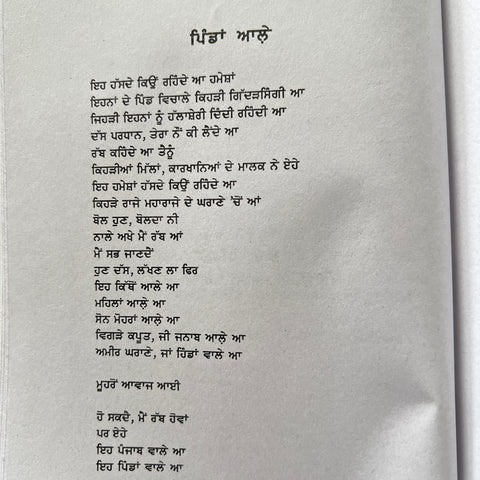 ਪਿੰਡਾਂ ਆਲ਼ੇ
ਇਹ ਹੱਸਦੇ ਕਿਉਂ ਰਹਿੰਦੇ ਆ ਹਮੇਸ਼ਾਂ
ਇਹਨਾਂ ਦੇ ਪਿੰਡ ਵਿਚਾਲੇ ਕਿਹੜੀ ਗਿੱਦੜਸਿੰਗੀ ਆ
ਜਿਹੜੀ ਇਹਨਾਂ ਨੂੰ ਹੱਲਾਸ਼ੇਰੀ ਦਿੰਦੀ ਰਹਿੰਦੀ ਆ
ਦੱਸ ਪਰਧਾਨ, ਤੇਰਾ ਨੌਂ ਕੀ ਲੈਂਦੇ ਆ
ਰੱਬ ਕਹਿੰਦੇ ਆ ਤੈਨੂੰ
ਕਿਹੜੀਆਂ ਮਿੱਲਾਂ, ਕਾਰਖਾਨਿਆਂ ਦੇ ਮਾਲਕ ਨੇ ਏਹੇ
ਇਹ ਹਮੇਸ਼ਾਂ ਹੱਸਦੇ ਕਿਉਂ ਰਹਿੰਦੇ ਆ
ਕਿਹੜੇ ਰਾਜੇ ਮਹਾਰਾਜੇ ਦੇ ਘਰਾਣੇ 'ਚੋਂ ਆਂ
ਬੋਲ ਹੁਣ, ਬੋਲਦਾ ਨੀ
ਨਾਲੇ ਅਖੇ ਮੈਂ ਰੱਬ ਆਂ
ਮੈਂ ਸਭ ਜਾਣਦੈਂ
ਹੁਣ ਦੱਸ, ਲੱਖਣ ਲਾ ਫਿਰ
ਇਹ ਕਿੱਥੋਂ ਆਲੇ ਆ
ਮਹਿਲਾਂ ਆਲ਼ੇ ਆ
ਸੋਨ ਮੋਹਰਾਂ ਆਲ਼ੇ ਆ
ਵਿਗੜੇ ਕਪੂਤ, ਜੀ ਜਨਾਬ ਆਲ਼ੇ ਆ
ਅਮੀਰ ਘਰਾਣੇ, ਜਾਂ ਹਿੰਡਾਂ ਵਾਲੇ ਆ
ਮੂਹਰੋਂ ਆਵਾਜ ਆਈ
ਹੋ ਸਕਦੈ, ਮੈਂ ਰੱਬ ਹੋਵਾਂ
ਪਰ ਏਹੇ
ਇਹ ਪੰਜਾਬ ਵਾਲੇ ਆ
ਇਹ ਪਿੰਡਾਂ ਵਾਲੇ ਆ